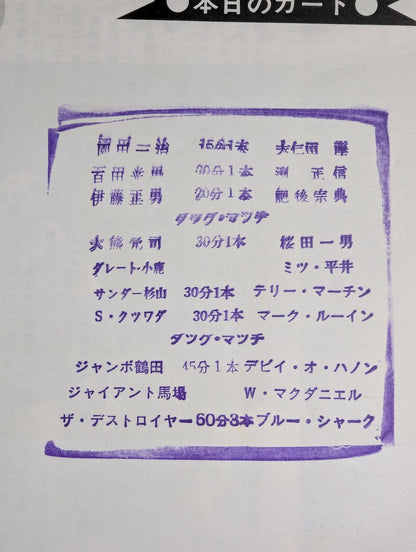 ●本日のカード●
園田一治 15分1本 大仁田厚
百田光雄 20分1本 渕正信
伊藤正男 20分1本 肥後宗典
タッグ・マッチ
大熊元司 30分1本 桜田一男
グレート・小鹿 ミツ・平井
サンダー杉山 30分1本 テリー・マーチン
S・クツワダ 30分1本 マーク・ルーイン
タッグ・マッチ
ジャンボ鶴田 45分1本 デビイ・オ・ハノン
ジャイアント馬場 W・マクダニエル
ザ・デストロイヤー 60分3本 ブルー・シャーク